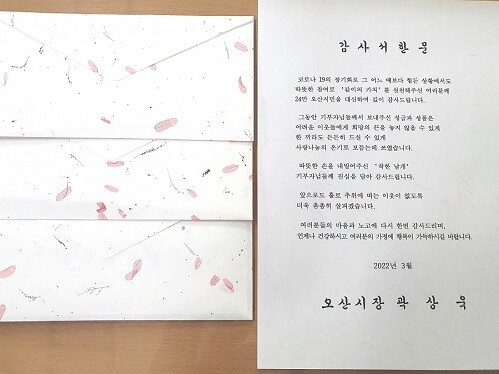 감사서한문
코로나 19의 장기화로 그 어느 때보다 힘든 상황에서도
따뜻한 참여로 '같이의 가치'를 실천해주신 여러분께
24만 오산시민을 대신하여 깊이 감사드립니다.
그동안 기부자님들께서 보내주신 성금과 성품은
어려운 이웃들에게 희망의 끈을 놓지 않을 수 있게
한 끼라도 든든히 드실 수 있게
사랑나눔의 온기로 보듬는데 쓰였습니다.
따뜻한 손을 내밀어주신 '착한 날개'
기부자님들께 진심을 담아 감사드립니다.
앞으로도 홀로 추위에 떠는 이웃이 없도록
더욱 촘촘히 살피겠습니다.
여러분들의 마음과 노고에 다시 한번 감사드리며,
언제나 건강하시고 여러분의 가정에 행복이 가득하시길 바랍니다.
2022년 3월
오산시장 곽상욱